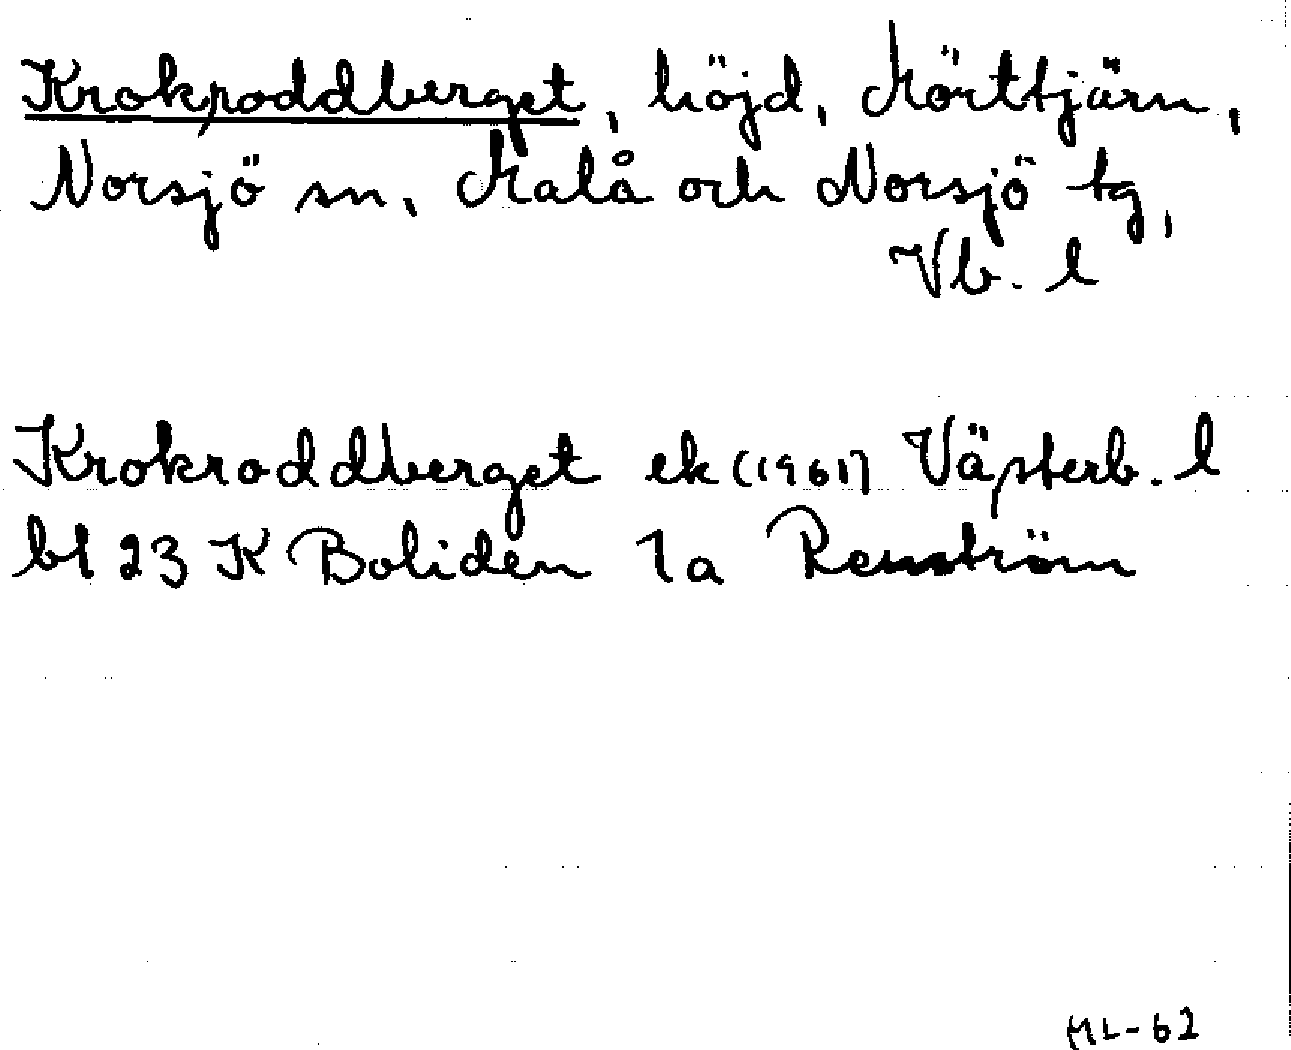 Krokroddberget, höjd, Mörttjärn,
Norsjö sn, Malå och Norsjö tg,
Vb. l
Krokroddberget ek (1961) Västerb. l
bl 23 K Boliden 1a Renström
ML-62